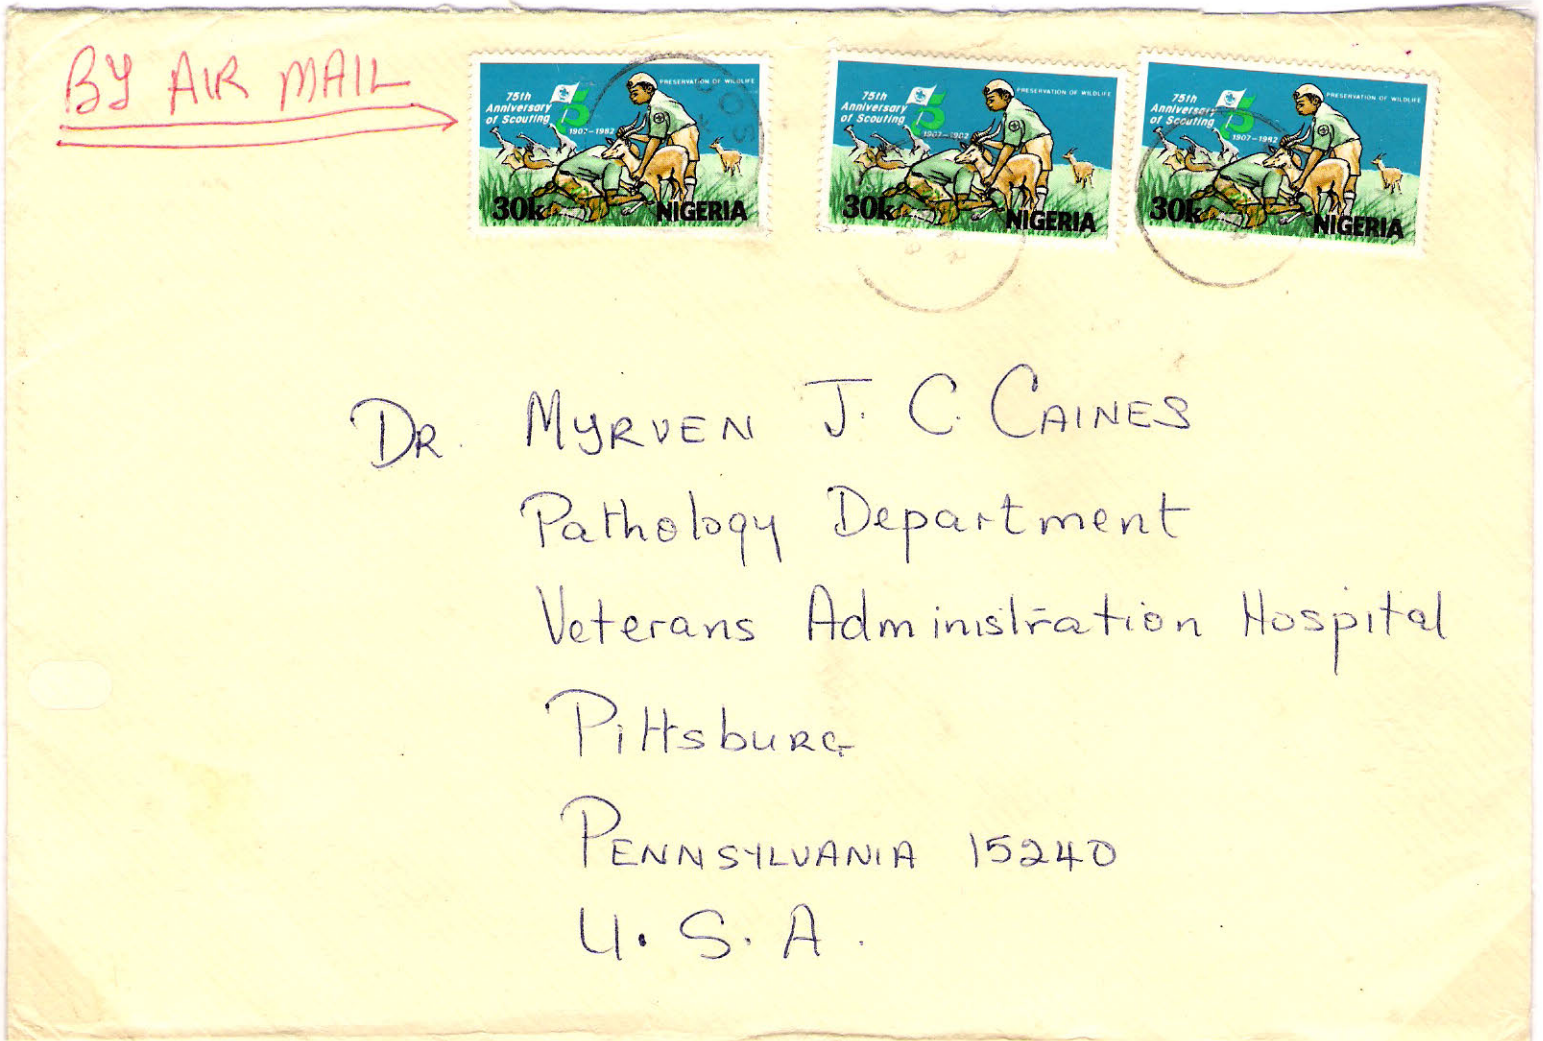 BY AIR MAIL
75th
Anniversary
of Scouting
1907-1982
PRESERVATION OF WILDLIFE
30k
NIGERIA
75th
Anniversary
of Scouting
1907-1982
PRESERVATION OF WILDLIFE
30k
NIGERIA
75th
Anniversary
of Scouting
1907-1982
PRESERVATION OF WILDLIFE
30k
NIGERIA
DR. MYRVEN J. C. CAINES
Pathology Department
Veterans Administration Hospital
PittsburG
PENNSYLVANIA 15240
U. S. A.